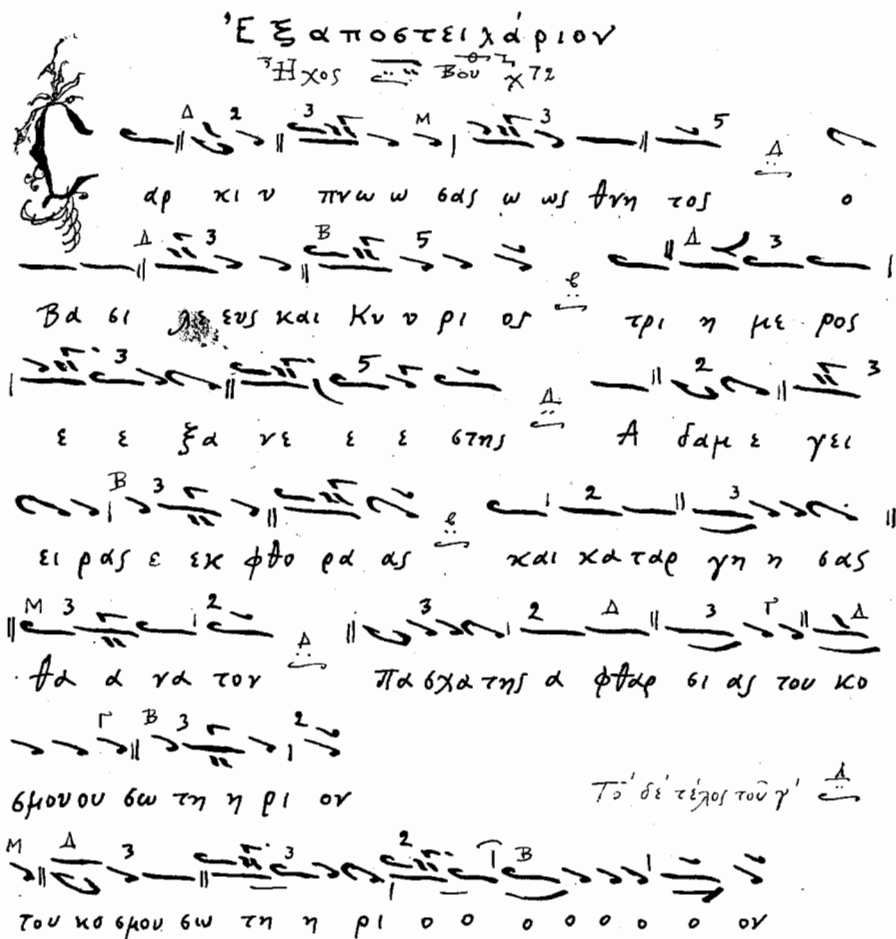 Ἐξαποστειλάριον
Ἦχος Βου χ 72
Σαρ κι υ πνω ω σας ω ως θνη τος ο
Βα σι λε ευς και Κυ υ ρι ος τρι η με ρος
ε ε ξα νε ε ε στης Α δαμ ε γει
ει ρας ε εκ φθο ρα ας και κα ταρ γη η σας
θα α να τον Πα σχα της α φθαρ σι ας του κο
σμου ου σω τη η ρι ον
Τὸ δέ τέλος τοῦ γ'
του κο σμου σω τη η ρι ο ο ο ο ο ο ο ον